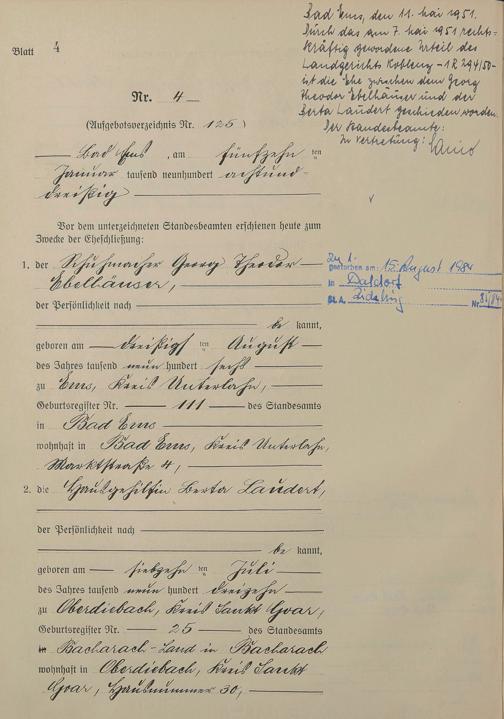 Blatt 4
Bad Ems, den 11. Mai 1951.
Durch das am 7. Mai 1951 rechts-
kräftig gewordene Urteil des
Landgerichts Koblenz - 1 R 294/50 -
ist die Ehe zwischen dem Georg
Theodor Ebelhäuser und der
Berta Laudert geschieden worden.
Der Standesbeamte:
In Vertretung:
Nr. 4
(Aufgebotsverzeichnis Nr. 125)
Bad Ems, am fünfzehn ten
Januar tausend neunhundert achtund-
dreißig
Vor dem unterzeichneten Standesbeamten erschienen heute zum
Zwecke der Eheschließung:
1. der Schuhmacher Georg Theodor
Ebelhäuser,
der Persönlichkeit nach
be kannt,
geboren am dreißigsten August
des Jahres tausend neun hundert sechs
zu Ems, Kreis Unterlahn,
Geburtsregister Nr. 111 des Standesamts
in Bad Ems
wohnhaft in Bad Ems, Kreis Unterlahn,
Marktstraße 4,
Zu 1.
gestorben am: 15. August 1984
in
St.A. Nr. 81/84
2. die Hausgehilfin Berta Laudert,
der Persönlichkeit nach
be kannt,
geboren am siebzehn ten Juli
des Jahres tausend neun hundert dreizehn
zu Oberdiebach, Kreis Sankt Goar,
Geburtsregister Nr. 25 des Standesamts
in Bacharach-Land in Bacharach
wohnhaft in Oberdiebach, Kreis Sankt
Goar, Hausnummer 30,